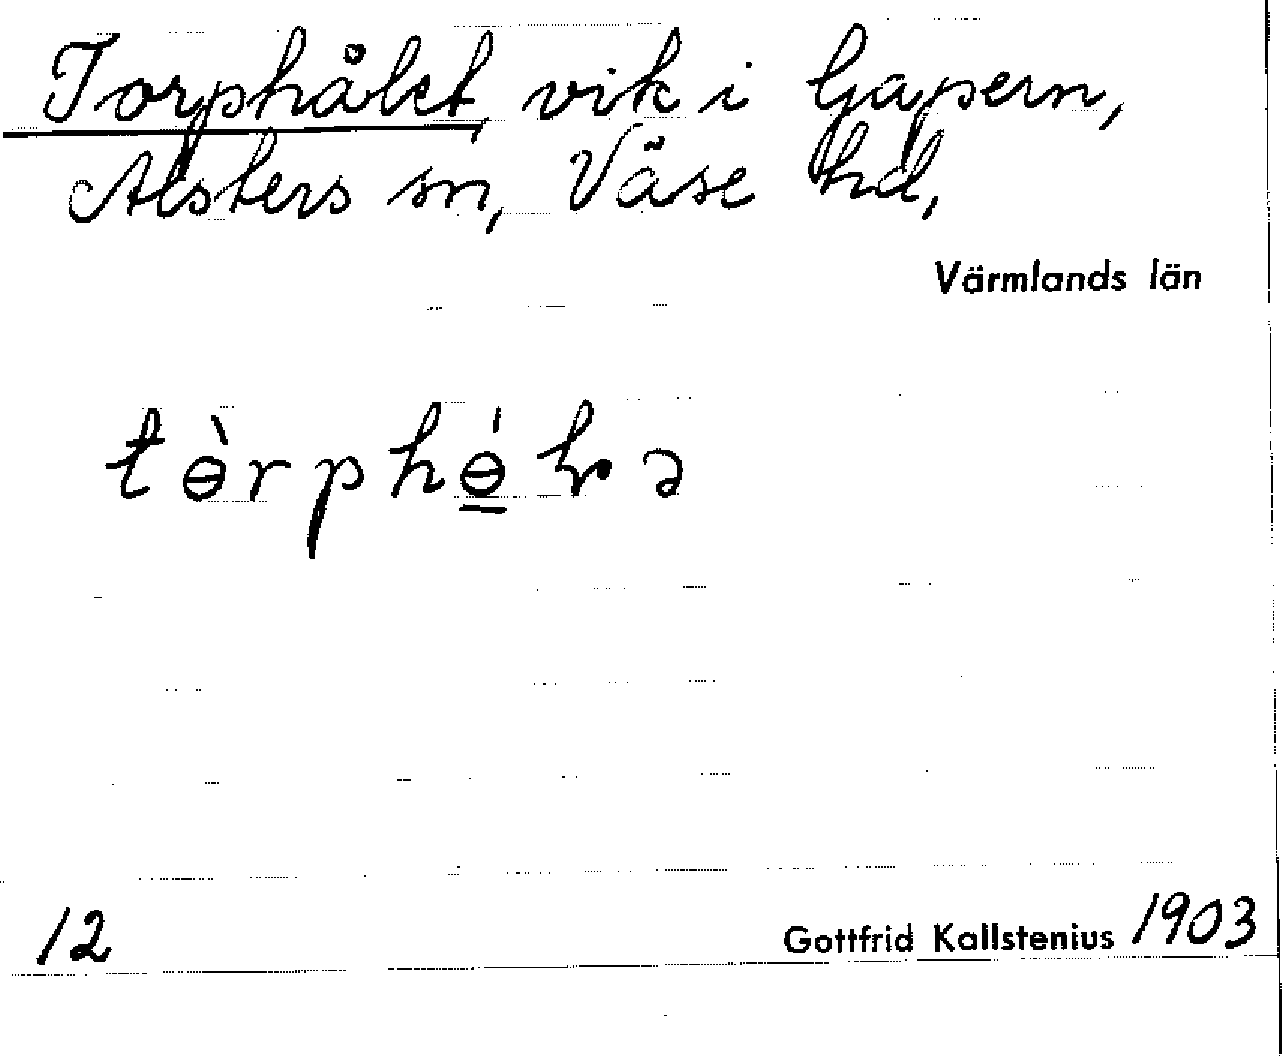 Torphålet, vik i Gapern,
Alsters sn, Väse hd,
Värmlands län
tɵ̀rphɵ̲́ɫ·ə
12 Gottfrid Kallstenius 1903